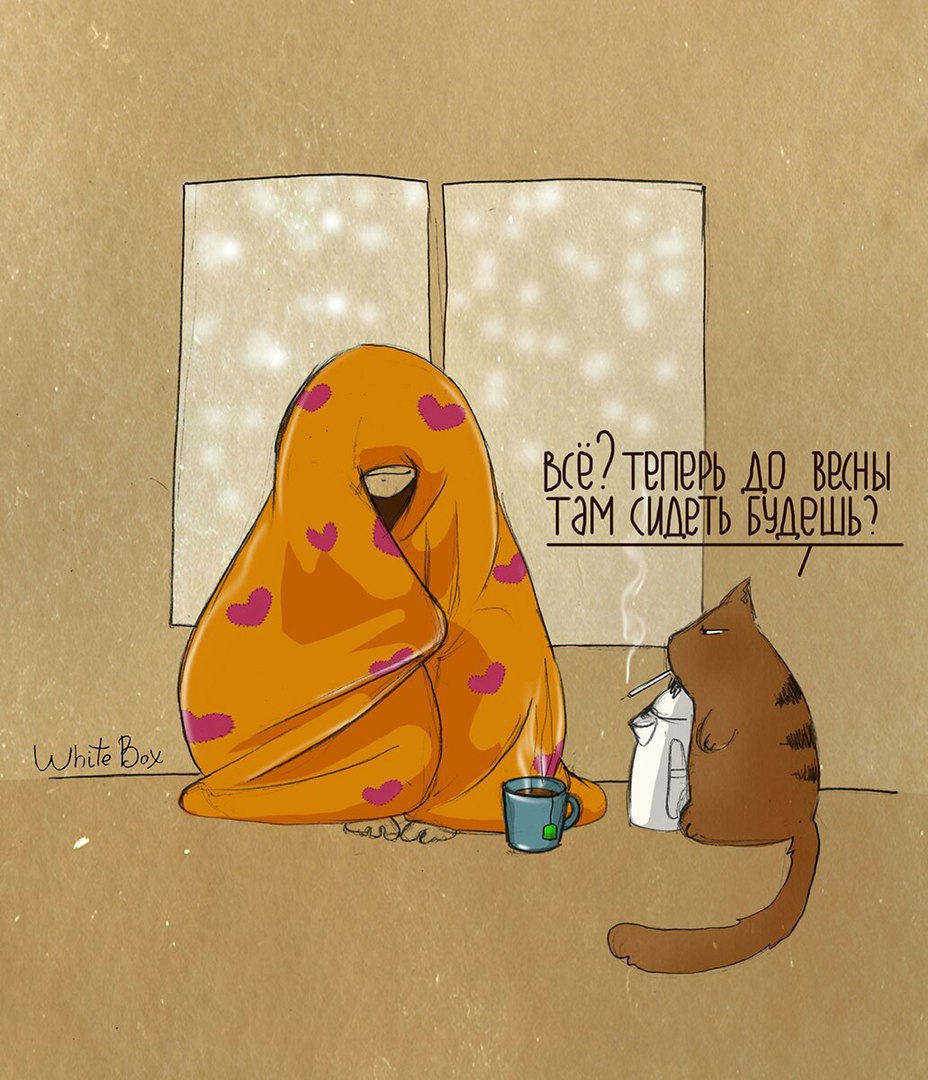 Всё? Теперь до весны
там сидеть будешь?
White Box